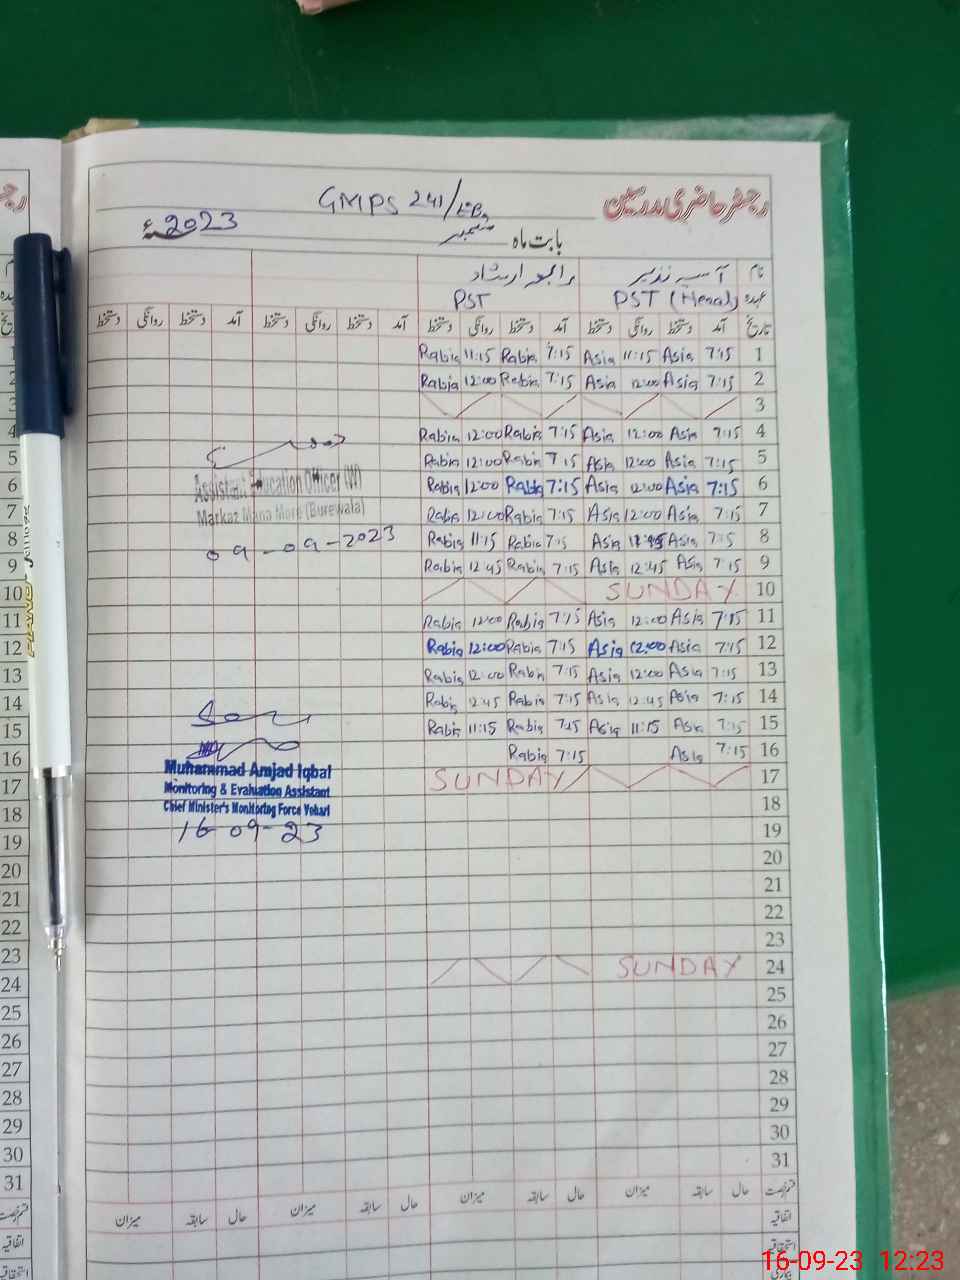 رجسٹر حاضری مدرسین
GMPS 241/EB
بابت ماہ ستمبر 2023ء
نام آسیہ نذیر رابعہ ارشاد
عہدہ PST (Head) PST
تاریخ آمد دستخط روانگی دستخط آمد دستخط روانگی دستخط آمد دستخط روانگی دستخط آمد دستخط روانگی دستخط
Rabia 11:15 Rabia 7:15 Asia 11:15 Asia 7:15 1
Rabia 12:00 Rabia 7:15 Asia 12:00 Asia 7:15 2
3
Rabia 12:00 Rabia 7:15 Asia 12:00 Asia 7:15 4
Rabia 12:00 Rabia 7:15 Asia 12:00 Asia 7:15 5
Rabia 12:00 Rabia 7:15 Asia 12:00 Asia 7:15 6
Rabia 12:00 Rabia 7:15 Asia 12:00 Asia 7:15 7
Rabia 11:15 Rabia 7:15 Asia Asia 7:15 8
Rabia 12:45 Rabia 7:15 Asia 12:45 Asia 7:15 9
SUNDAY 10
Rabia 12:00 Rabia 7:15 Asia 12:00 Asia 7:15 11
Rabia 12:00 Rabia 7:15 Asia 12:00 Asia 7:15 12
Rabia 12:00 Rabia 7:15 Asia 12:00 Asia 7:15 13
Rabia 12:45 Rabia 7:15 Asia 12:45 Asia 7:15 14
Rabia 11:15 Rabia 7:15 Asia 11:15 Asia 7:15 15
Rabia 7:15 Asia 7:15 16
SUNDAY 17
18
19
20
21
22
23
SUNDAY 24
25
26
27
28
29
30
31
Assistant Education Officer (W)
Markaz Mana More (Burewala)
09-09-2023
Muhammad Amjad Iqbal
Monitoring & Evaluation Assistant
Chief Minister's Monitoring Force Vehari
16-09-23
قسم رخصت حال سابقہ میزان حال سابقہ میزان حال سابقہ میزان حال سابقہ میزان
اتفاقیہ
استحقاقیہ
1
2
4
5
6
7
8
9
10
11
12
13
14
15
16
17
18
19
20
21
22
23
24
25
26
27
28
29
30
31
16-09-23 12:23